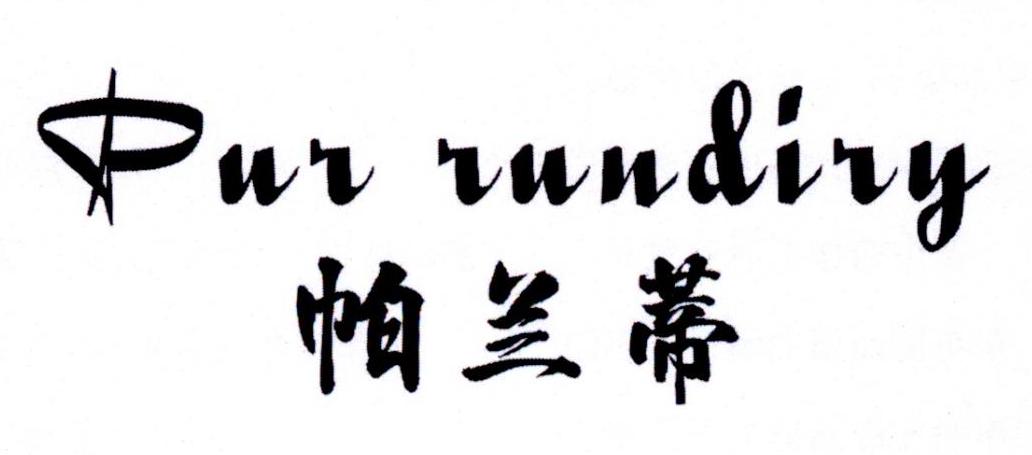 Pur rundiry
帕兰蒂